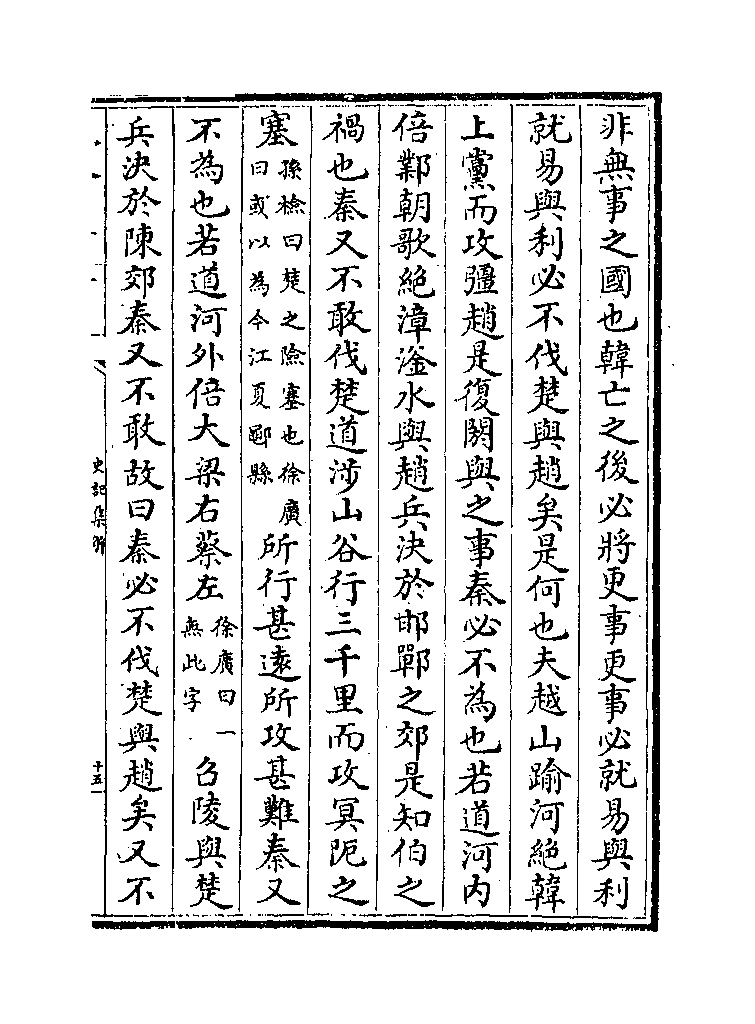 非無事之國也韓亡之後必將更事更事必就易與利
就易與利必不伐楚與趙矣是何也夫越山踰河絶韓
上黨而攻彊趙是復閼與之事秦必不為也若道河内
倍鄴朝歌絶漳滏水與趙兵決於邯鄲之郊是知伯之
禍也秦又不敢伐楚道涉山谷行三千里而攻冥阸之
塞
孫檢曰楚之險塞也徐廣
曰或以為今江夏鄳縣
所行甚遠所攻甚難秦又
不為也若道河外倍大梁右蔡左
徐廣曰一
無此字
召陵與楚
兵決於陳郊秦又不敢故曰秦必不伐楚與趙矣又不
史記集解
十五